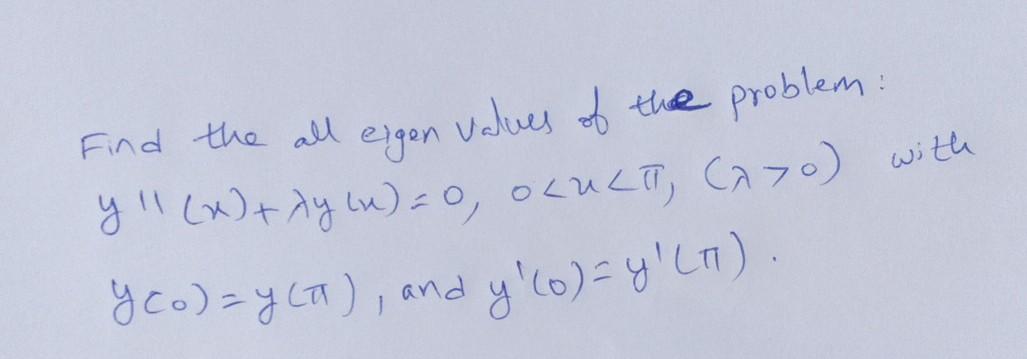 Find the all eigen values of the problem:
y''(x)+λy(x)=0, 0<x<π, (λ>0) with
y(0)=y(π), and y'(0)=y'(π).